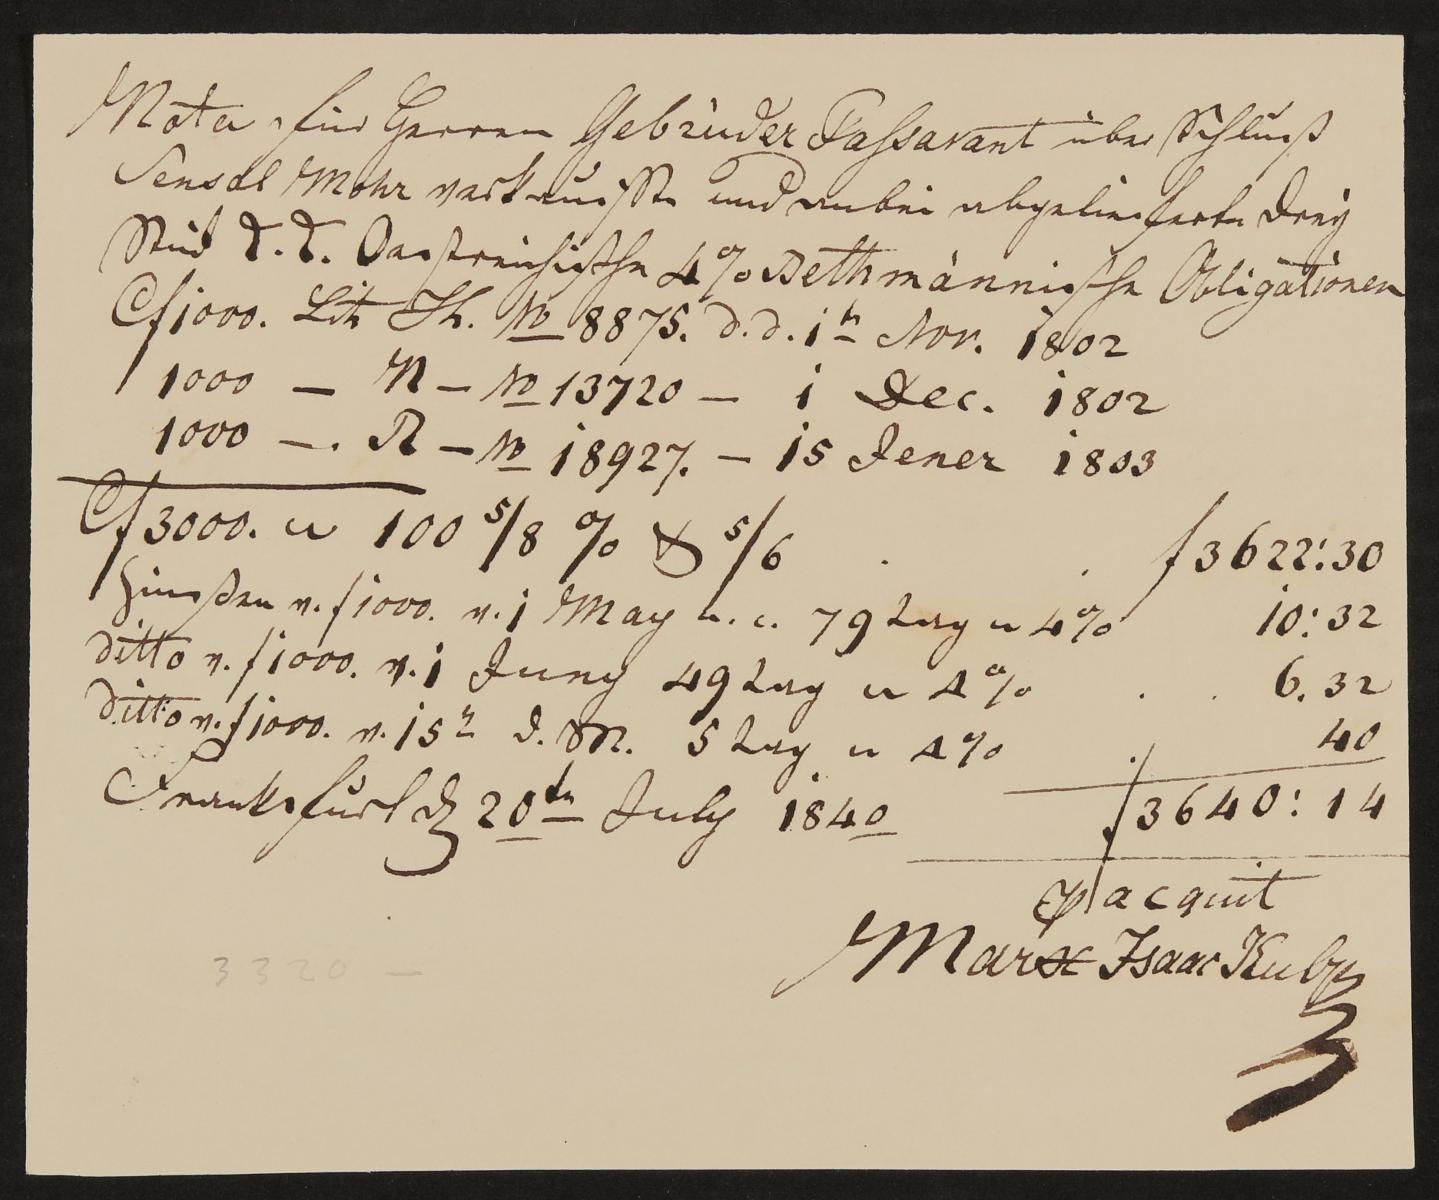 Nota für Herren Gebrüder Passavant über Schluß
Sensal Mohr verkauffte und anbei abgelieferte Drey
Stück K. K. Oestreichische 4% Bethmännische Obligationen
Cf 1000. Litt H. No 8875. d.d. 1n Nov. 1802
1000 — N — No 13720 — 1 Dec. 1802
1000 — . R — No 18927. — 15 Jener 1803
Cf 3000. a 100 5/8 % & 5/6 . . f 3622:30
Zinßen v. f 1000. v. 1 May a. c. 79 Tag a 4% 10:32
ditto v. f 1000. v. 1 Juny 49 Tag a 4% . . 6.32
ditto v. f 1000. v. 15n d. M. 5 Tag a 4% . 40
Frankfurt d 20tn July 1840 f 3640:14
p acquit
Marx Isaac
3320 —